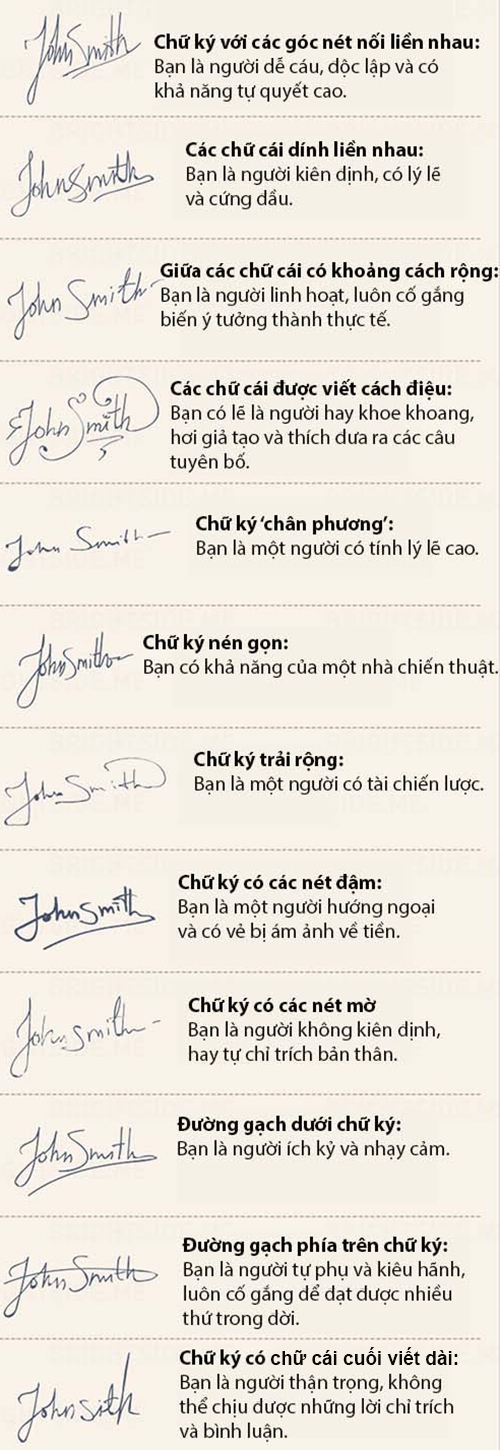 John Smith
Chữ ký với các góc nét nối liền nhau:
Bạn là người dễ cáu, độc lập và có
khả năng tự quyết cao.
John Smith
Các chữ cái dính liền nhau:
Bạn là người kiên định, có lý lẽ
và cứng đầu.
John Smith
Giữa các chữ cái có khoảng cách rộng:
Bạn là người linh hoạt, luôn cố gắng
biến ý tưởng thành thực tế.
John Smith
Các chữ cái được viết cách điệu:
Bạn có lẽ là người hay khoe khoang,
hơi giả tạo và thích đưa ra các câu
tuyên bố.
John Smith
Chữ ký ‘chân phương’:
Bạn là một người có tính lý lẽ cao.
John Smith
Chữ ký nén gọn:
Bạn có khả năng của một nhà chiến thuật.
John Smith
Chữ ký trải rộng:
Bạn là một người có tài chiến lược.
John Smith
Chữ ký có các nét đậm:
Bạn là một người hướng ngoại
và có vẻ bị ám ảnh về tiền.
John Smith
Chữ ký có các nét mờ
Bạn là người không kiên định,
hay tự chỉ trích bản thân.
John Smith
Đường gạch dưới chữ ký:
Bạn là người ích kỷ và nhạy cảm.
John Smith
Đường gạch phía trên chữ ký:
Bạn là người tự phụ và kiêu hãnh,
luôn cố gắng để đạt được nhiều
thứ trong đời.
John
Chữ ký có chữ cái cuối viết dài:
Bạn là người thận trọng, không
thể chịu được những lời chỉ trích
và bình luận.